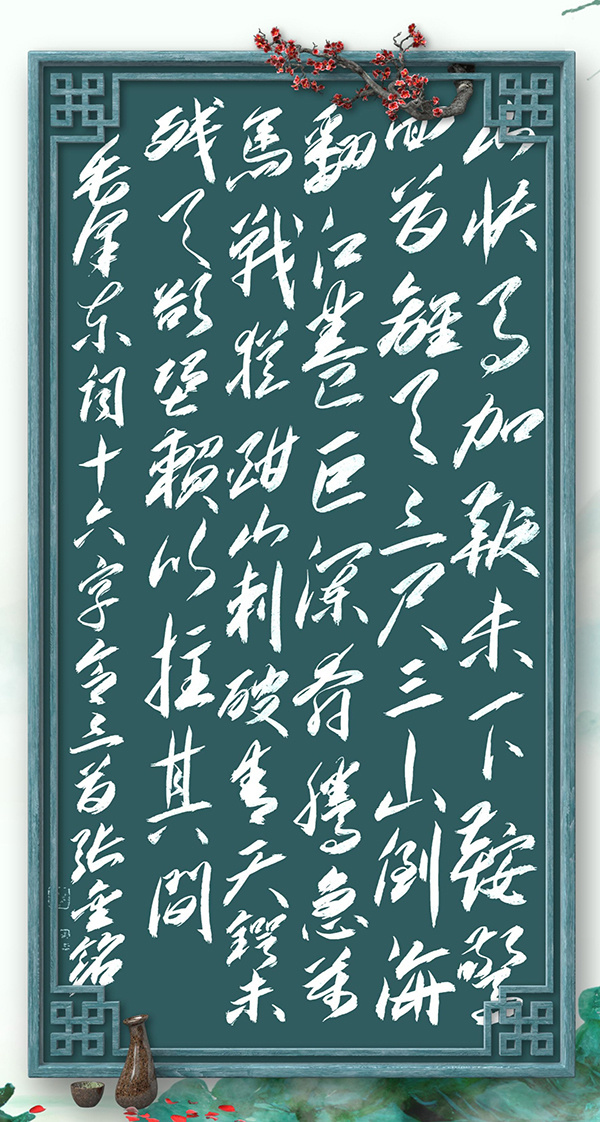 山快马加鞭未下鞍驚
回首離天三尺三山倒海
翻江卷巨澜奔騰急萬
馬戰犹酣山刺破青天鍔未
残天欲堕賴以拄其間
毛泽东词十六字令三首张金铭